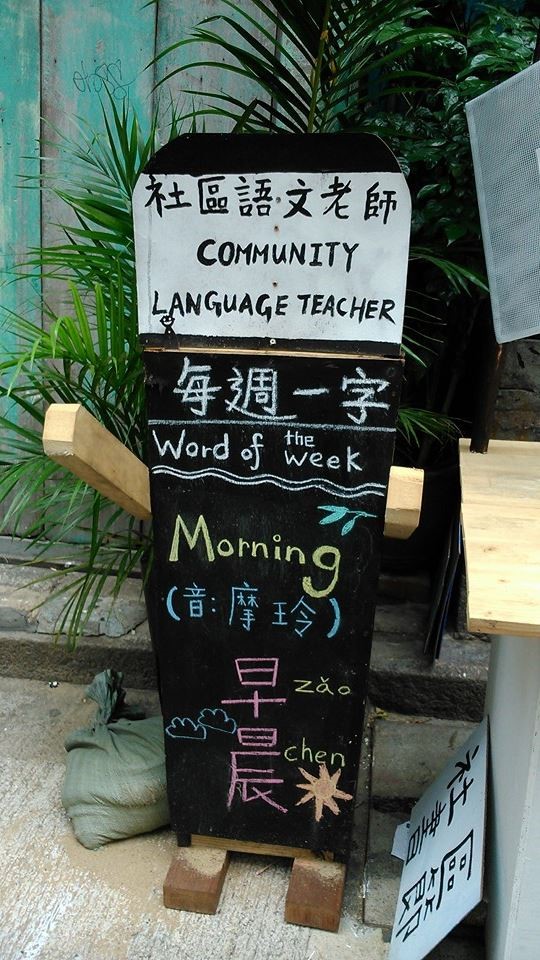 社區語文老師
COMMUNITY
LANGUAGE TEACHER
每週一字
Word of the week
Morning
(音: 摩玲)
早 zǎo
晨 chen